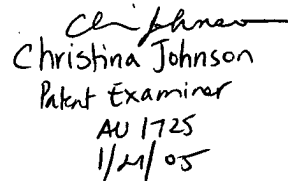 Chris Johnson
Christina Johnson
Patent Examiner
AU 1725
1/21/05